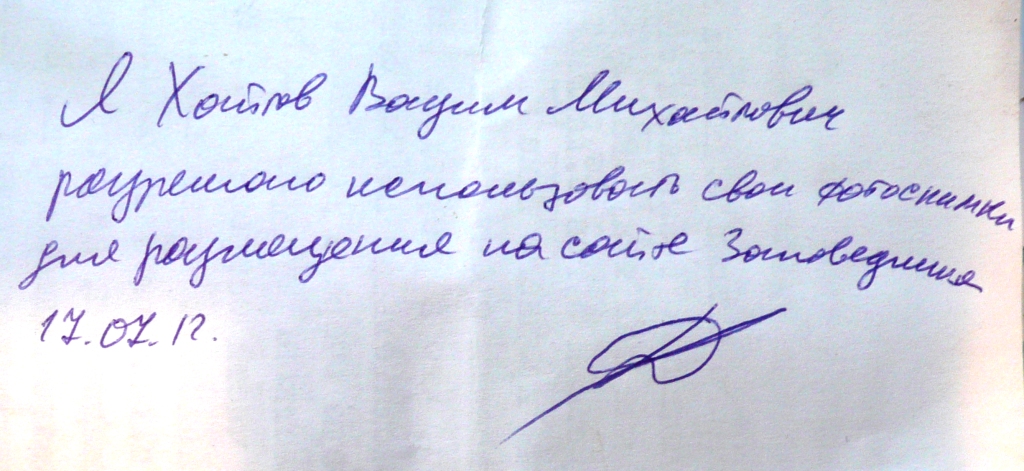 Я Хаитов Вадим Михайлович
разрешаю использовать свои фотоснимки
для размещения на сайте Заповедника
17.07.12.